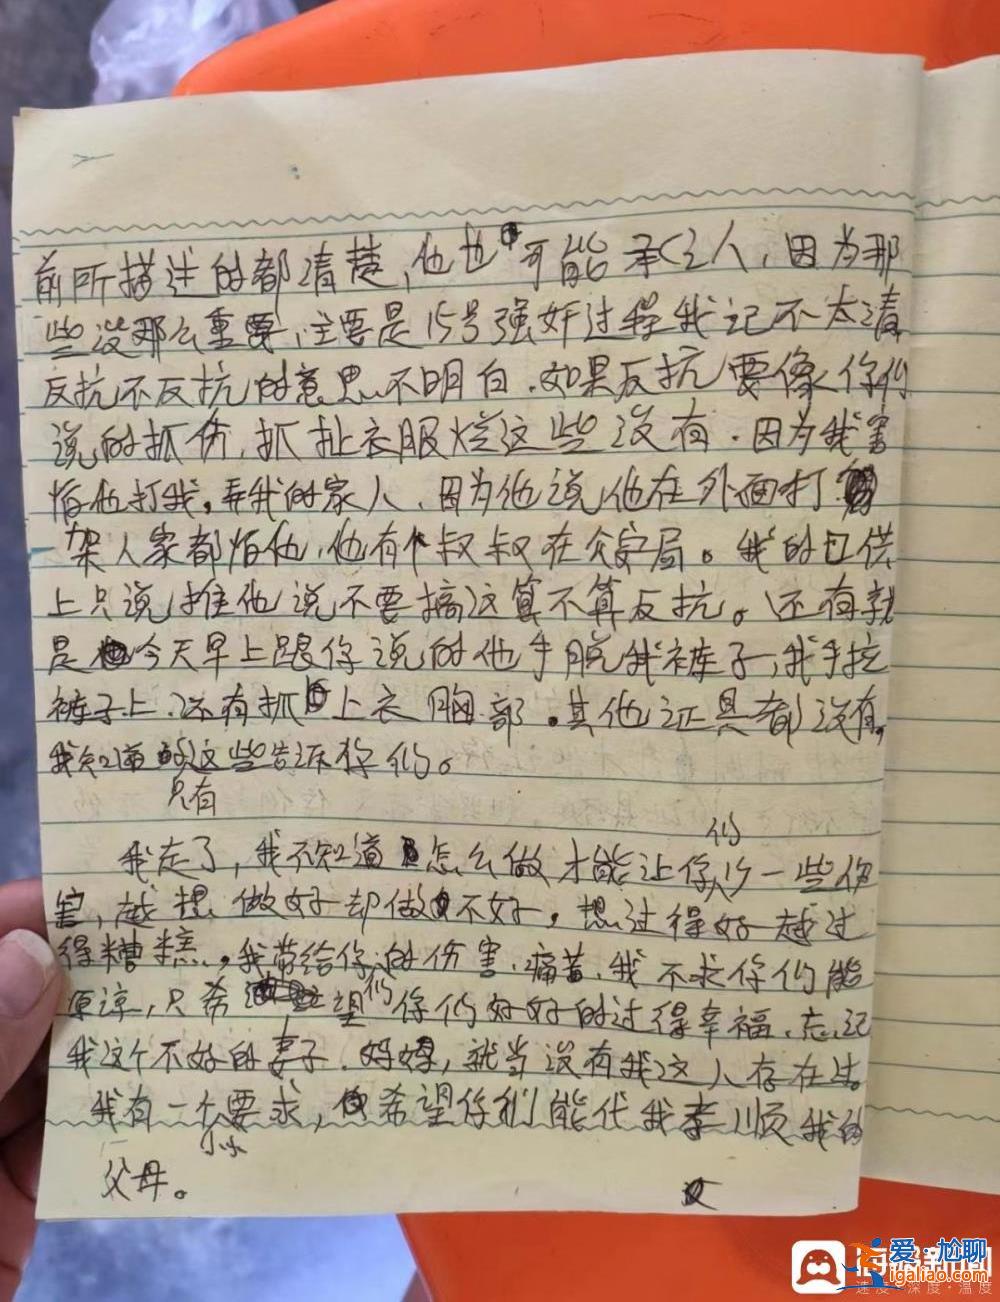 前所描述的都清楚,他也可能承认,因为那
些没那么重要,主要是15号强奸过程我记不太清
反抗不反抗的意思不明白.如果反抗要像你们
说的抓伤,抓扯衣服烂这些没有.因为我害
怕他打我,弄我的家人.因为他说他在外面打
架人家都怕他,他有个叔叔在公安局。我的口供
上只说推他说不要搞这算不算反抗。还有就
是今天早上跟你说的他手脱我裤子,我手拉
裤子上.还有抓上衣胸部.其他证具都没有,
我知道的这些告诉你们。
只有
我走了,我不知道怎么做才能让你们少一些伤
害,越想做好却做不好,想过得好越过
得糟糕。我带给你们的伤害.痛苦.我不求你们能
原谅,只希望你们好好的过得幸福.忘记
我这个不好的妻子.妈妈,就当没有我这人存在过。
我有一个小小要求,希望你们能代我孝顺我的
父母。
海报新闻
速度·深度·温度
爱·尬聊
igaliao.com